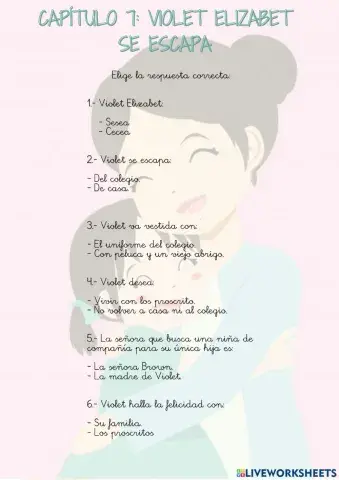 CAPÍTULO 7: VIOLET ELIZABET
SE ESCAPA
Elige la respuesta correcta:
1.- Violet Elizabet:
- Sesea.
- Cecea.
2.- Violet se escapa:
- Del colegio.
- De casa.
3.- Violet va vestida con:
- El uniforme del colegio.
- Con peluca y un viejo abrigo.
4.- Violet desea:
- Vivir con los proscrito.
- No volver a casa ni al colegio.
5.- La señora que busca una niña de
compañía para su única hija es:
- La señora Brown.
- La madre de Violet.
6.- Violet halla la felicidad con:
- Su familia.
- Los proscritos
LIVEWORKSHEETS